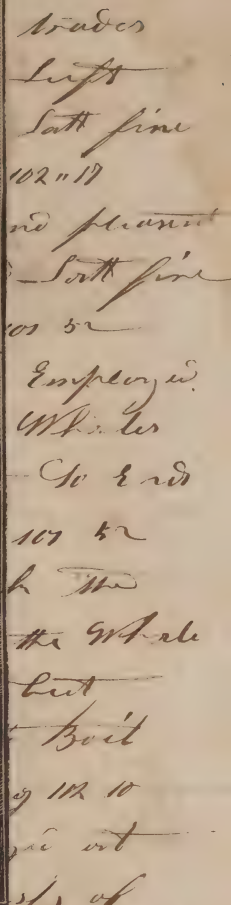 trades
Left
Latt fine
102"17
nd pleasant
Latt fine
101 52
Employed
Whales
So Ends
107 52
h the
the Whale
but
Boil
g 102 10
out
of